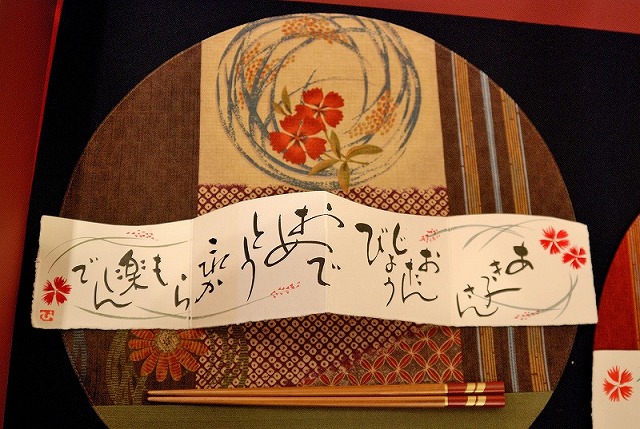 あきこさん
おたん
じょう
び
おめで
とう
これか
らも
楽しん
で